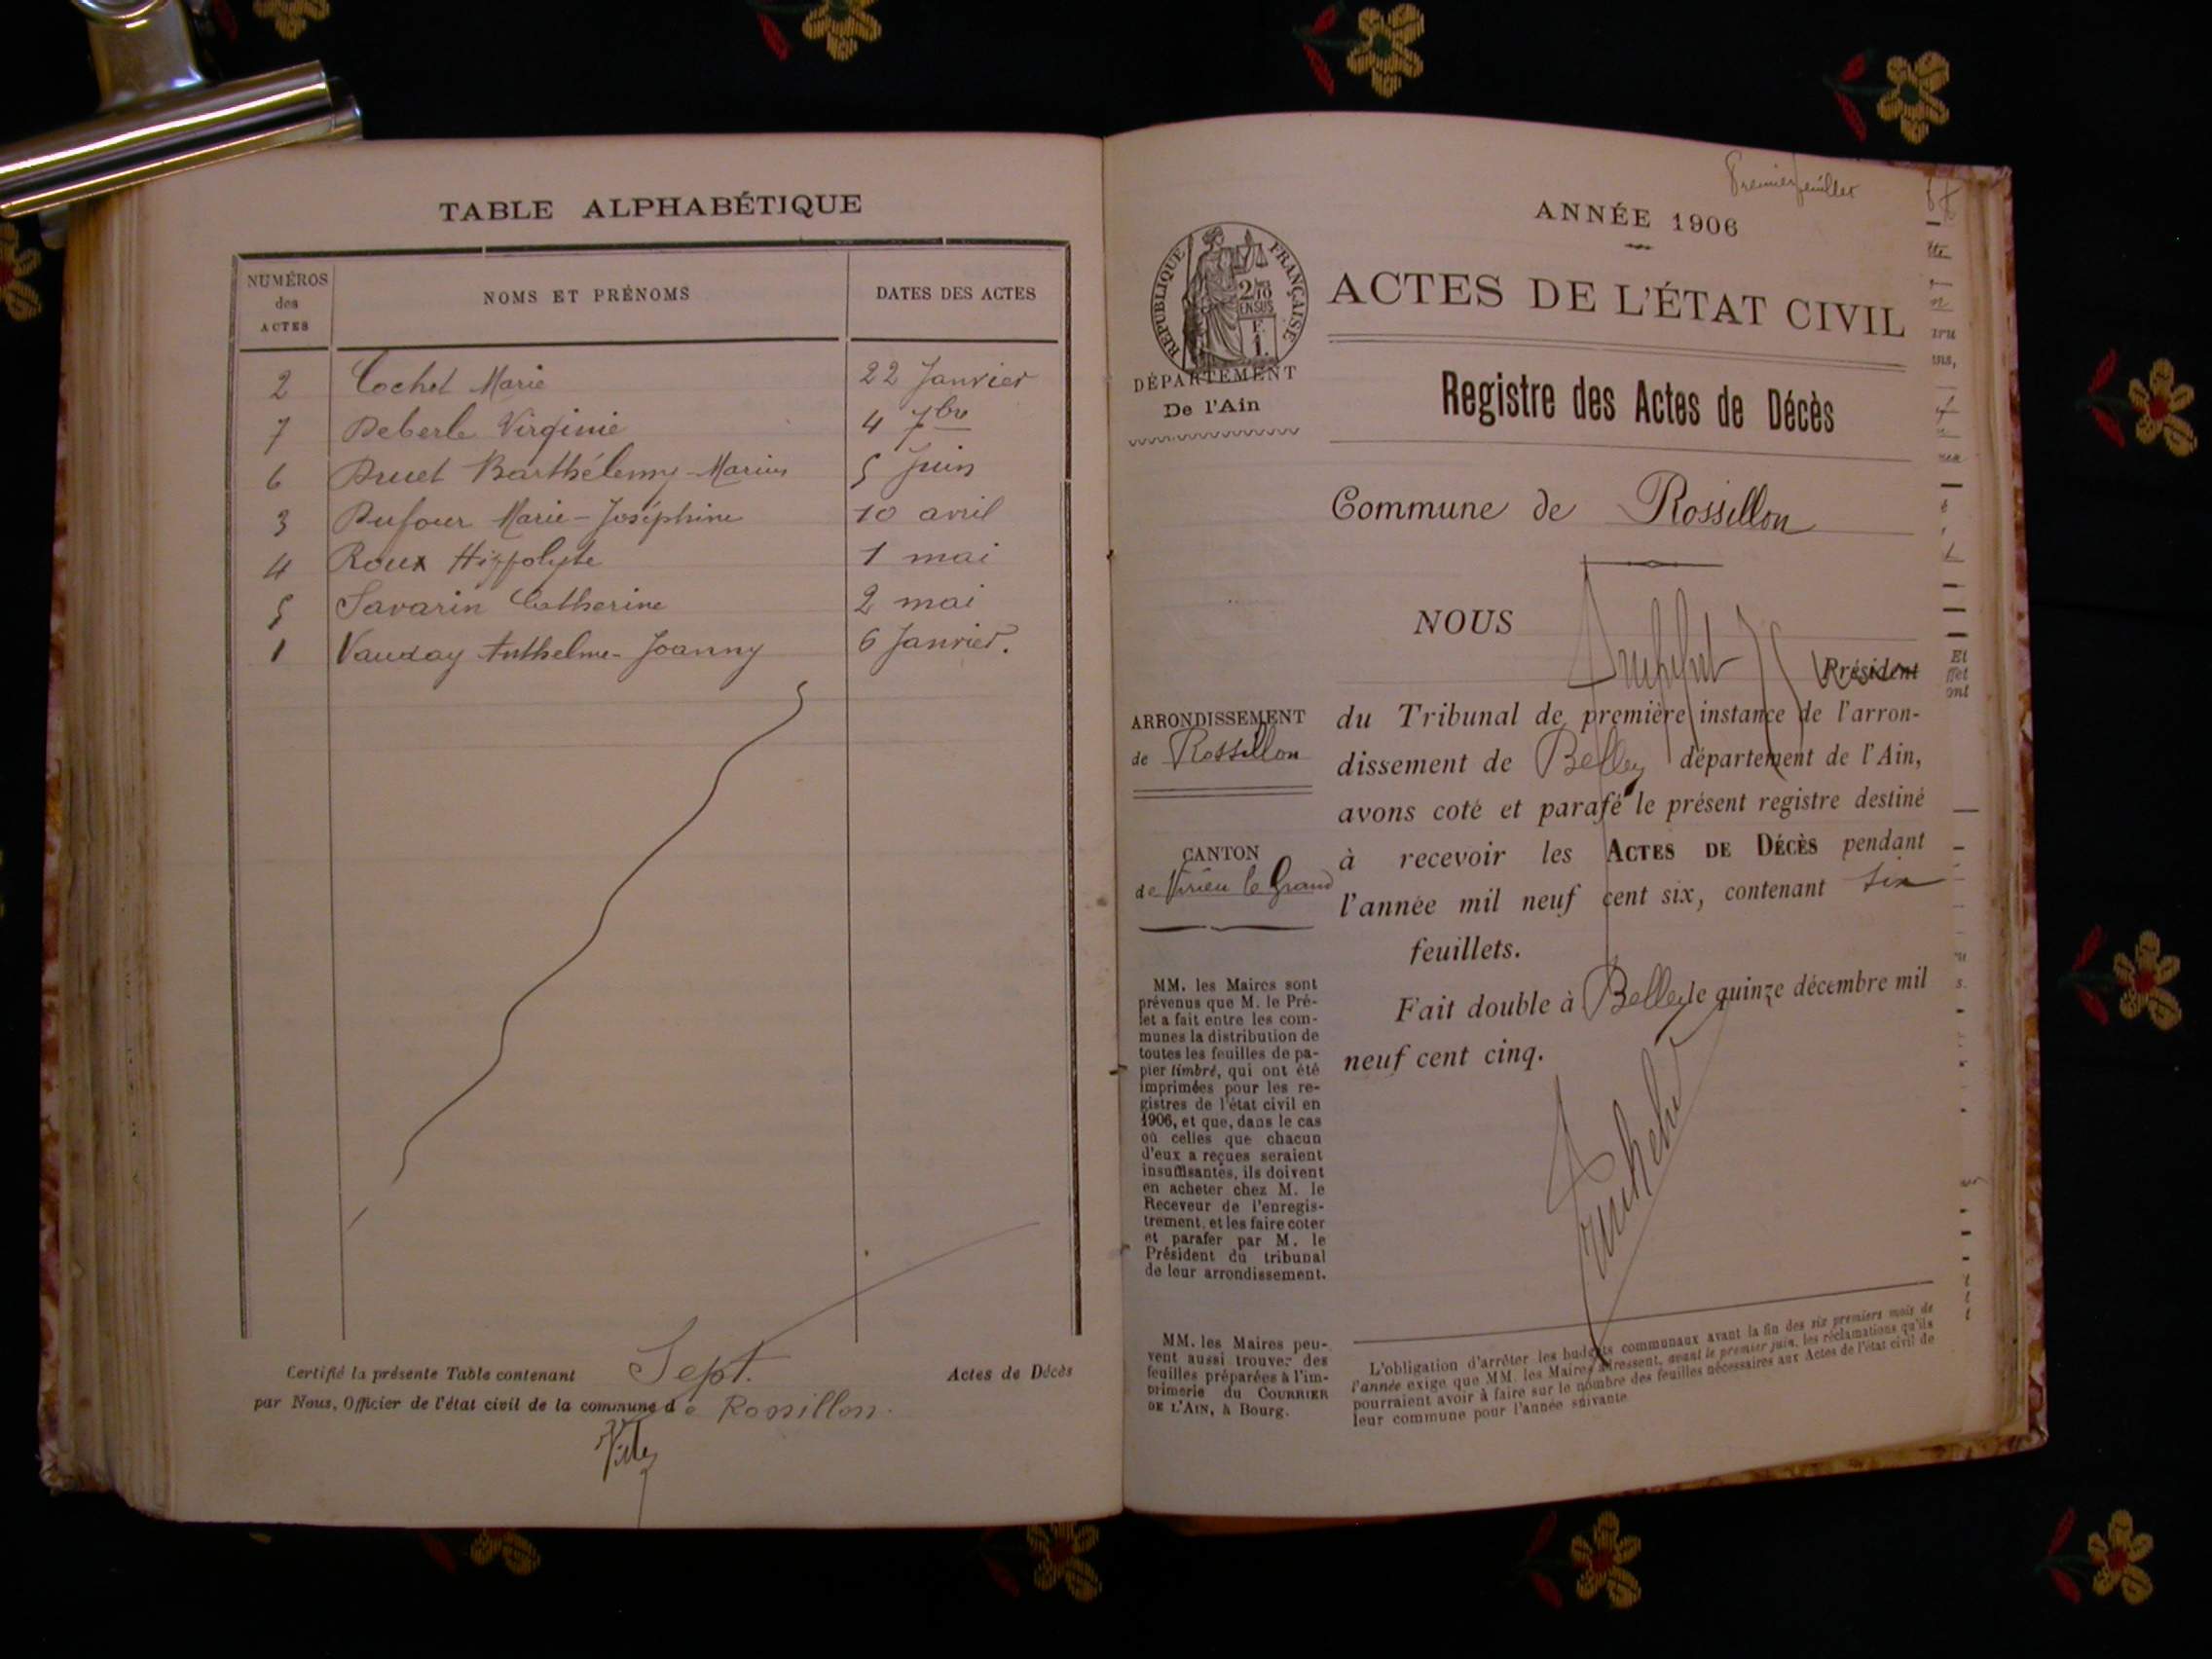 TABLE ALPHABÉTIQUE
NUMÉROS des ACTES
NOMS ET PRÉNOMS
DATES DES ACTES
2 Cochet Marie 22 Janvier
7 Deberle Virginie 4 7bre
6 Druet Barthélemy-Marius 5 Juin
3 Dufour Marie-Joséphine 10 avril
4 Roux Hippolyte 1 mai
5 Savarin Catherine 2 mai
1 Vauday Anthelme-Joanny 6 Janvier.
Certifié la présente Table contenant Sept. Actes de Décès
par Nous, Officier de l'état civil de la commune de Rossillon.
Premier feuillet
ANNÉE 1906
RÉPUBLIQUE FRANÇAISE
2/10
EN SUS
F.
1.
ACTES DE L'ÉTAT CIVIL
DÉPARTEMENT
De l'Ain
Registre des Actes de Décès
Commune de Rossillon
NOUS
Président
ARRONDISSEMENT
de Rossillon
du Tribunal de première instance de l'arron-
dissement de Belley département de l'Ain,
avons coté et parafé le présent registre destiné
à recevoir les ACTES DE DÉCÈS pendant
l'année mil neuf cent six, contenant six
feuillets.
CANTON
de Virieu le Grand
Fait double à Belley le quinze décembre mil
neuf cent cinq.
MM. les Maires sont
prévenus que M. le Pré-
fet a fait entre les com-
munes la distribution de
toutes les feuilles de pa-
pier timbré, qui ont été
imprimées pour les re-
gistres de l'état civil en
1906, et que, dans le cas
où celles que chacun
d'eux a reçues seraient
insuffisantes, ils doivent
en acheter chez M. le
Receveur de l'enregis-
trement, et les faire coter
et parafer par M. le
Président du tribunal
de leur arrondissement.
MM. les Maires peu-
vent aussi trouver des
feuilles préparées à l'im-
primerie du COURRIER
DE L'AIN, à Bourg.
L'obligation d'arrêter les budgets communaux avant la fin des six premiers mois de
l'année exige que MM. les Maires adressent, avant le premier juin, les réclamations qu'ils
pourraient avoir à faire sur le nombre des feuilles nécessaires aux Actes de l'état civil de
leur commune pour l'année suivante